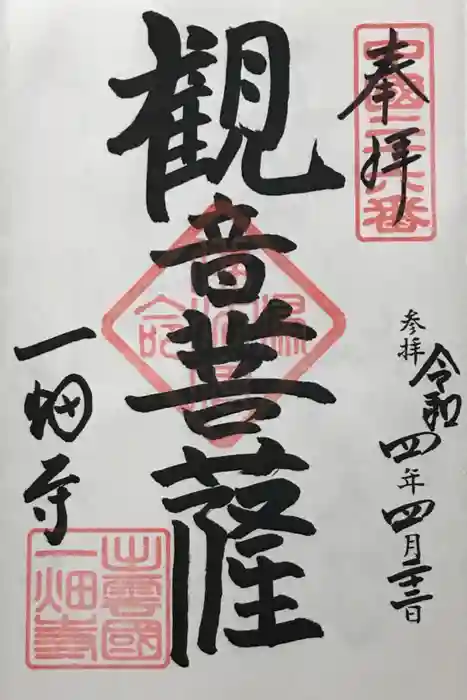 奉拝
中國二十六番
参拝
令和四年四月二十二日
観音菩薩
一畑寺
出雲國一畑寺